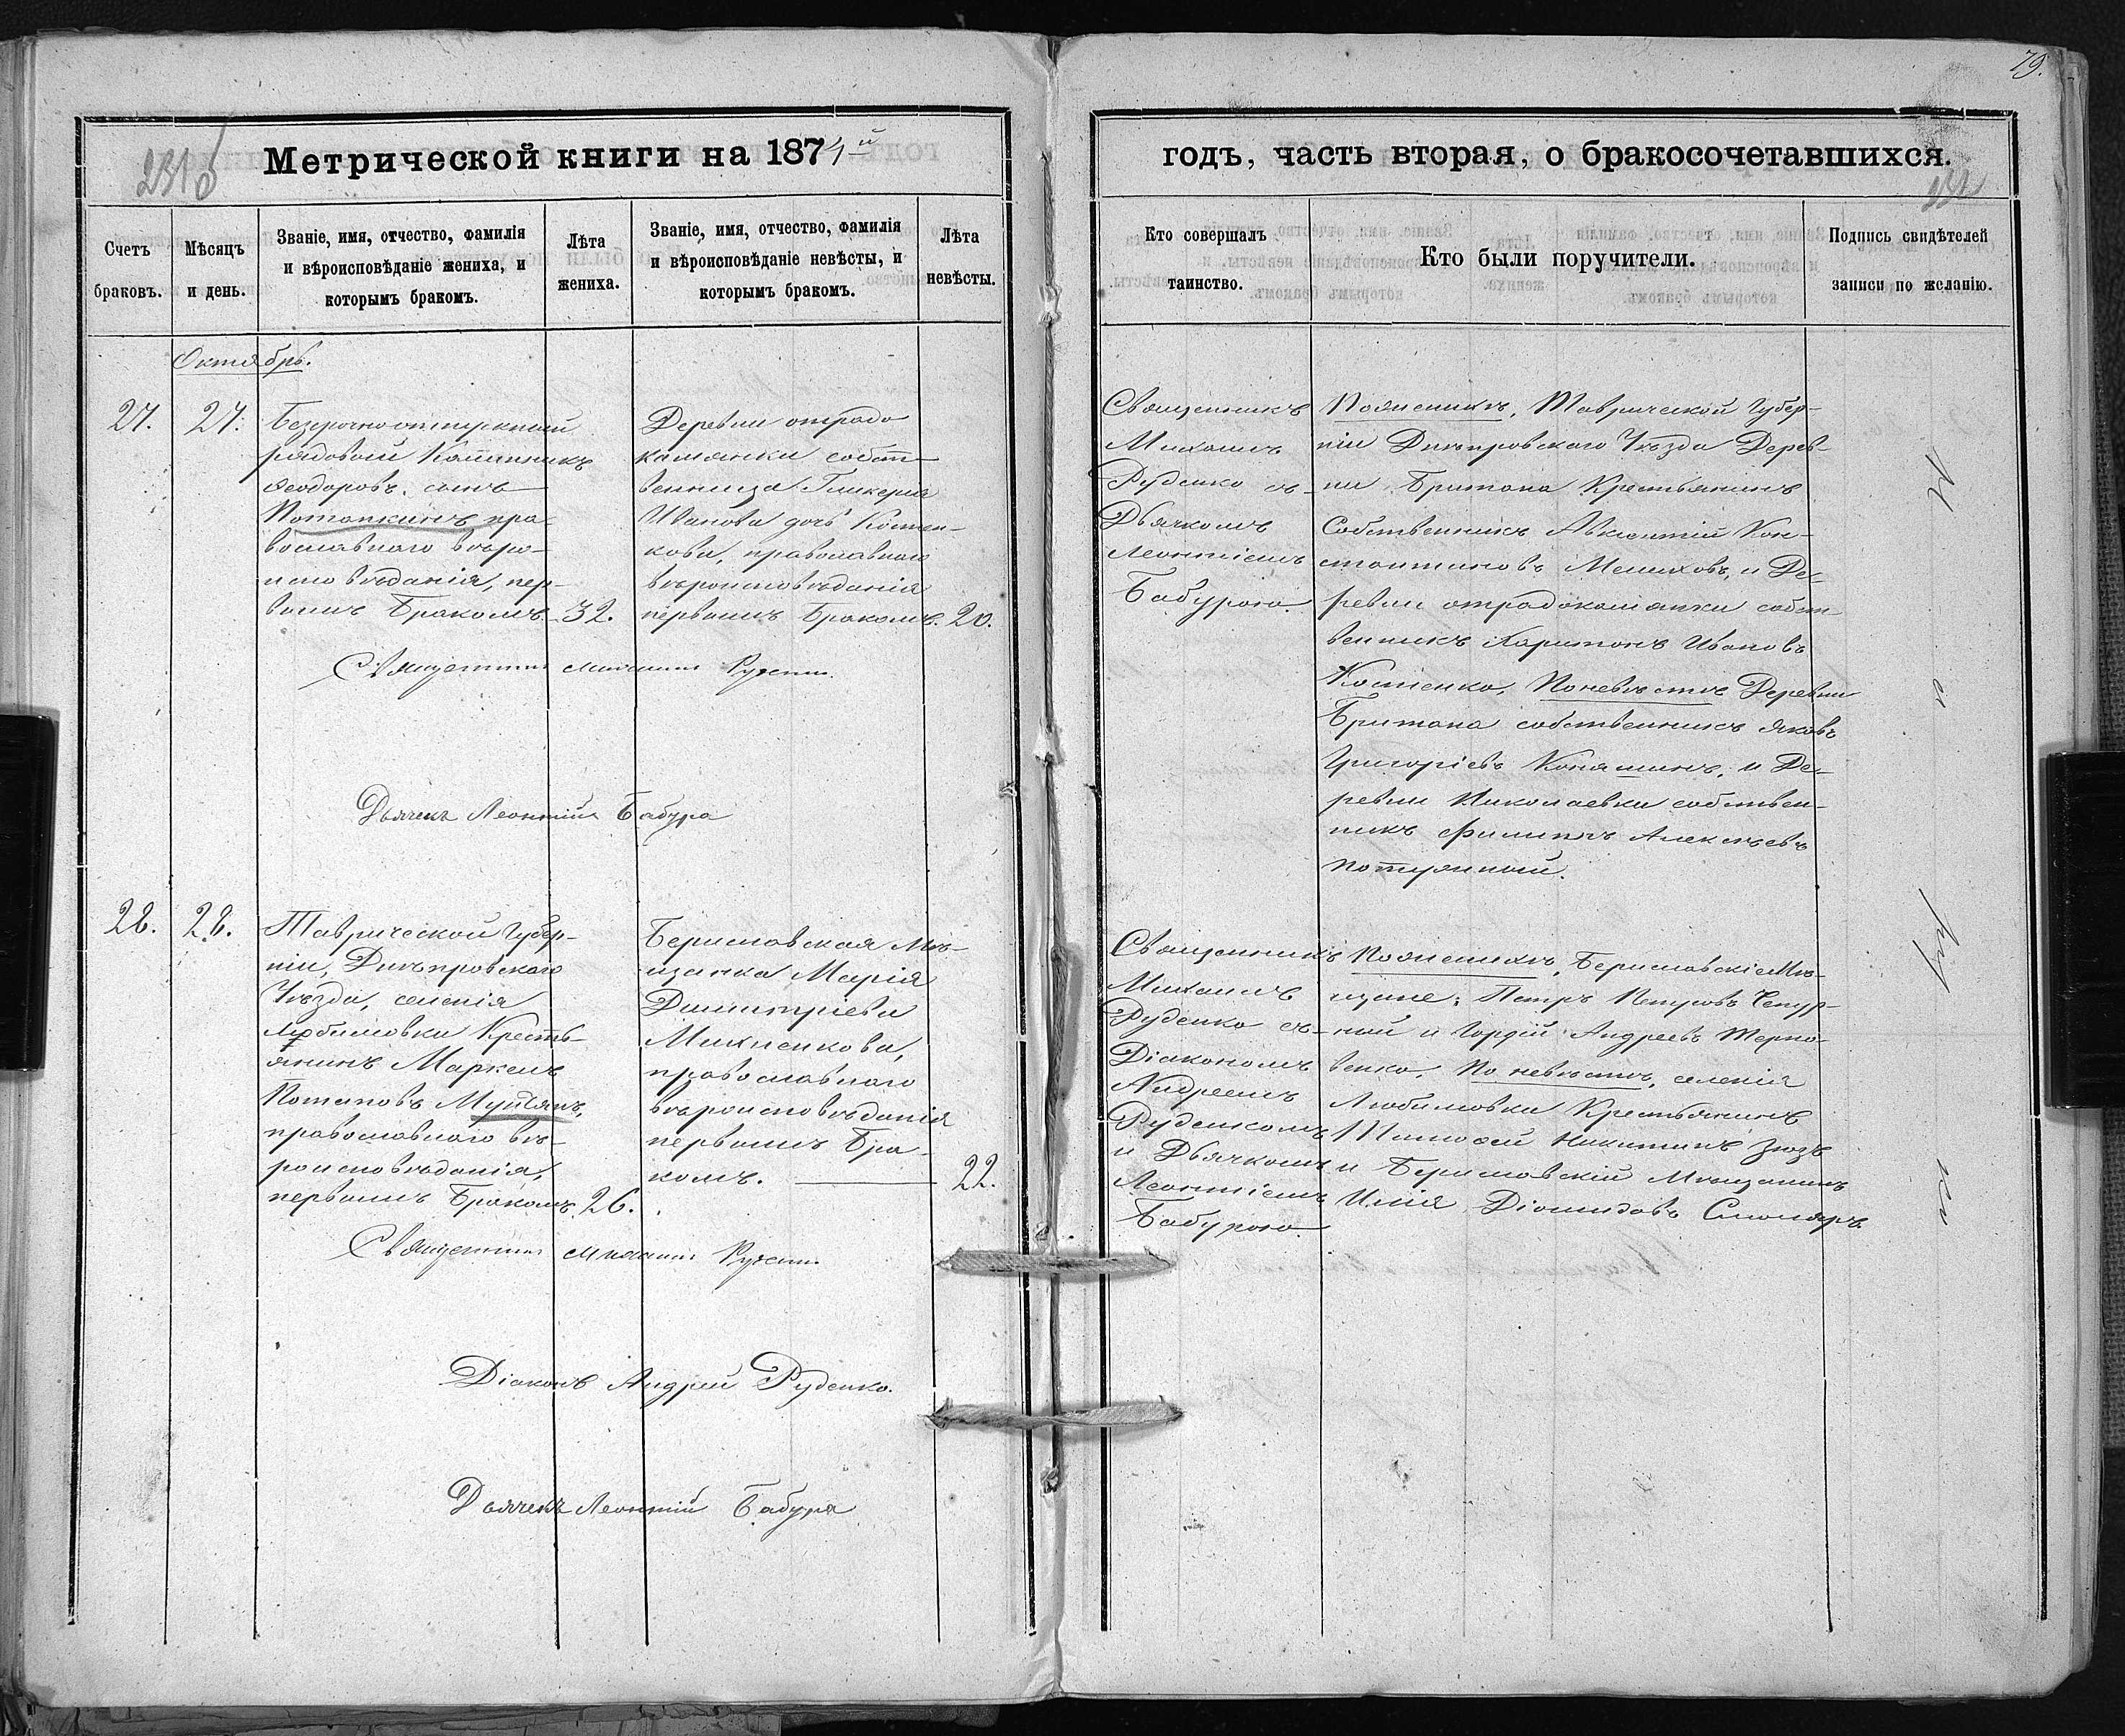 79.
Метрической книги на 1874й
годъ, часть вторая, о бракосочетавшихся.
Счетъ браковъ.
Мѣсяцъ и день.
Званіе, имя, отчество, фамилія
и вѣроисповѣданіе жениха, и
которымъ бракомъ.
Лѣта
жениха.
Званіе, имя, отчество, фамилія
и вѣроисповѣданіе невѣсты, и
которымъ бракомъ.
Лѣта
невѣсты.
Кто совершалъ
таинство.
Кто были поручители.
Подпись свидѣтелей
записи по желанію.
Октябрь.
27.
27.
Безсрочноотпускный
рядовой
Ѳеодоровъ, сынъ
Потапкинъ пра-
вославнаго вѣро-
исповѣданія, пер-
вымъ Бракомъ.
32.
Деревни отрадо
каменки собст-
венница Гликерія
Иванова дочь Костен-
кова, православнаго
вѣроисповѣданія
первымъ Бракомъ.
20.
Священникъ
Михаилъ
Руденко съ
Дьячкомъ
Леонтіемъ
Бабурою.
По женихѣ, Таврической Губер-
ніи Днѣпровскаго Уѣзда Дерев-
ни Британа Крестьянинъ
Собственникъ Авксентій Кон-
стантиновъ и Де-
ревни отрадокаменки собст-
венникъ Харитонъ Ивановъ
Костенко, По невѣстѣ Деревни
Британа собственникъ Яковъ
Григоріевъ и Де-
ревни Николаевки собствен-
никъ Филиппъ Алексѣевъ
Священникъ Михаилъ Руденко.
Дьячекъ Леонтій Бабура
28.
28.
Таврической Губер-
ніи, Днѣпровскаго
Уѣзда, селенія
Любимовки Кресть-
янинъ Маркелъ
Потаповъ
православнаго вѣ-
роисповѣданія,
первымъ Бракомъ.
26.
Бериславская Мѣ-
щанка Марія
Димитріева
Михненкова,
православнаго
вѣроисповѣданія
первымъ Бра-
комъ.
22.
Священникъ
Михаилъ
Руденко съ
Діакономъ
Андреемъ
Руденкомъ
и Дьячкомъ
Леонтіемъ
Бабурою.
По женихѣ, Бериславскіе Мѣ-
щане: Петръ Петровъ Чепур-
ный и Гордій Андреевъ Терно-
венко, По невѣстѣ, селенія
Любимовки Крестьянинъ
Тимофей Никитинъ Зюзь
и Бериславскій Мѣщанинъ
Илія Діомидовъ Столяръ.
Священникъ Михаилъ Руденко.
Діаконъ Андрей Руденко.
Дьячекъ Леонтій Бабура